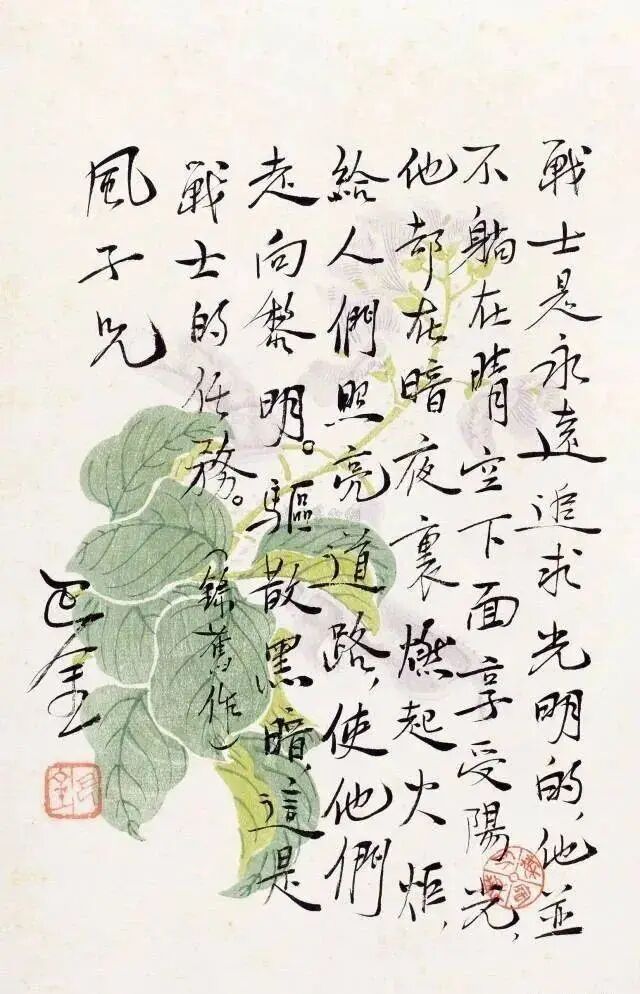 戰士是永遠追求光明的，他並
不躺在晴空下面享受陽光，
他却在暗夜裏燃起火炬，
給人們照亮道路，使他們
走向黎明。驅散黑暗，這是
戰士的任務。
（錄舊作）
風子兄
巴金